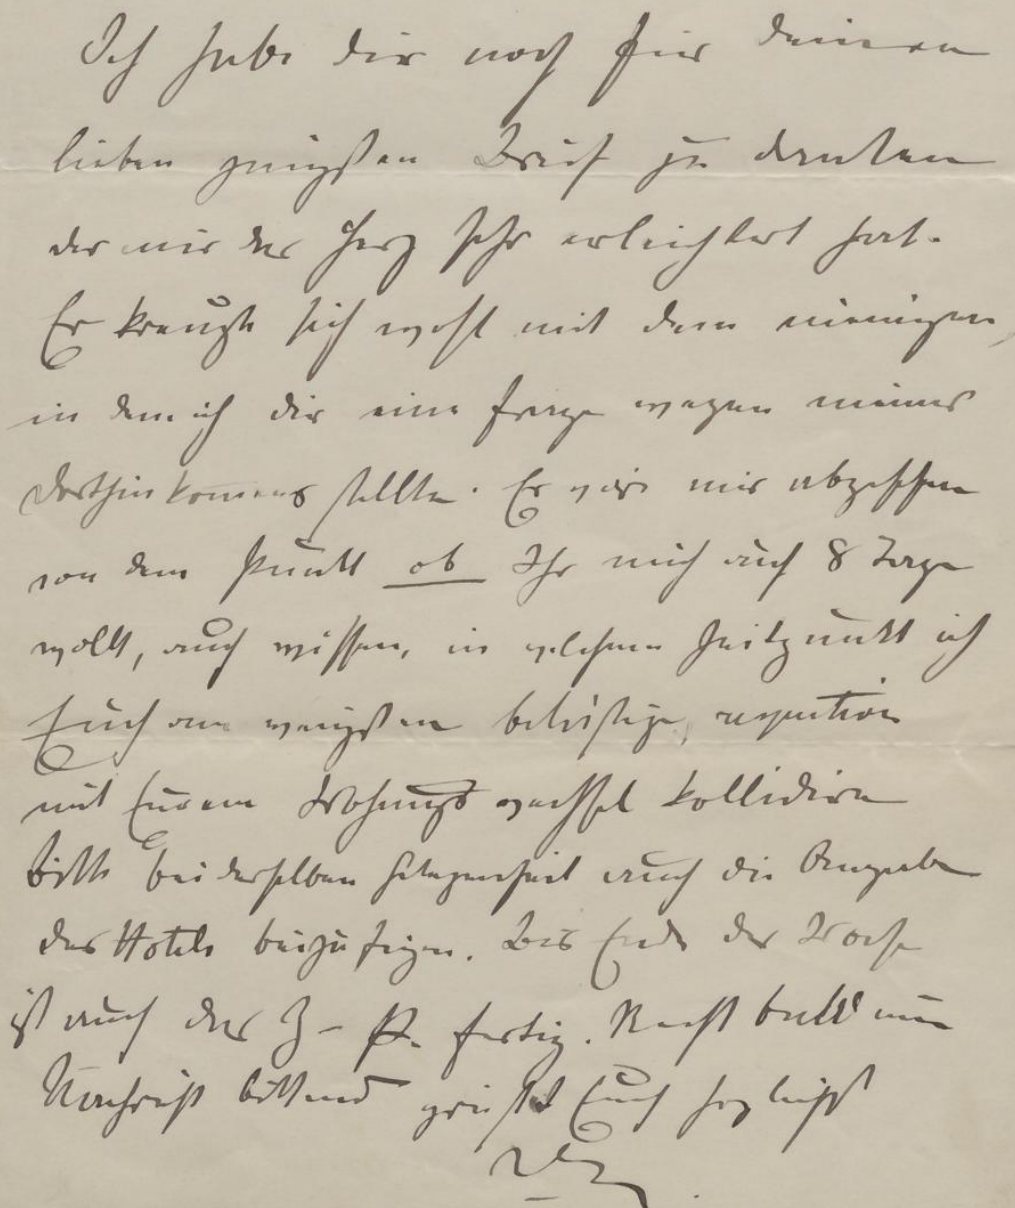 Ich habe dir noch für deinen
lieben gütigen Brief zu danken
der mir das Herz sehr erleichtert hat.
Er kreuzte sich wohl mit dem meinigen,
in dem ich dir eine Frage wegen meines
Dorthinkomens stellte. Es wäre mir abgesehen
von dem Punkt ob Ihr mich auf 8 Tage
wollt, auch wissen, in welchem Zeitpunkt ich
Euch am wenigsten belästige,
mit Eurem Wohnungswechsel kollidire
Bitte bei derselben Gelegenheit auch die Angabe
des Hotels beizufügen. Bis Ende der Woche
ist auch das fertig. Recht bald um
Nachricht bittend grüßt Euch herzlichst